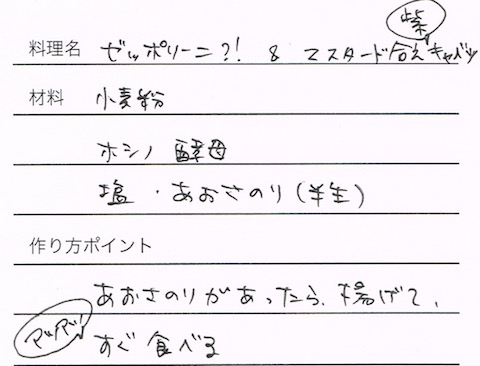 料理名 ゼッポリーニ?! & マスタード合え紫キャベツ
材料 小麦粉
ホシノ 酵母
塩・あおさのり(半生)
作り方ポイント
あおさのりがあったら、揚げて、
アツアツ! すぐ食べる